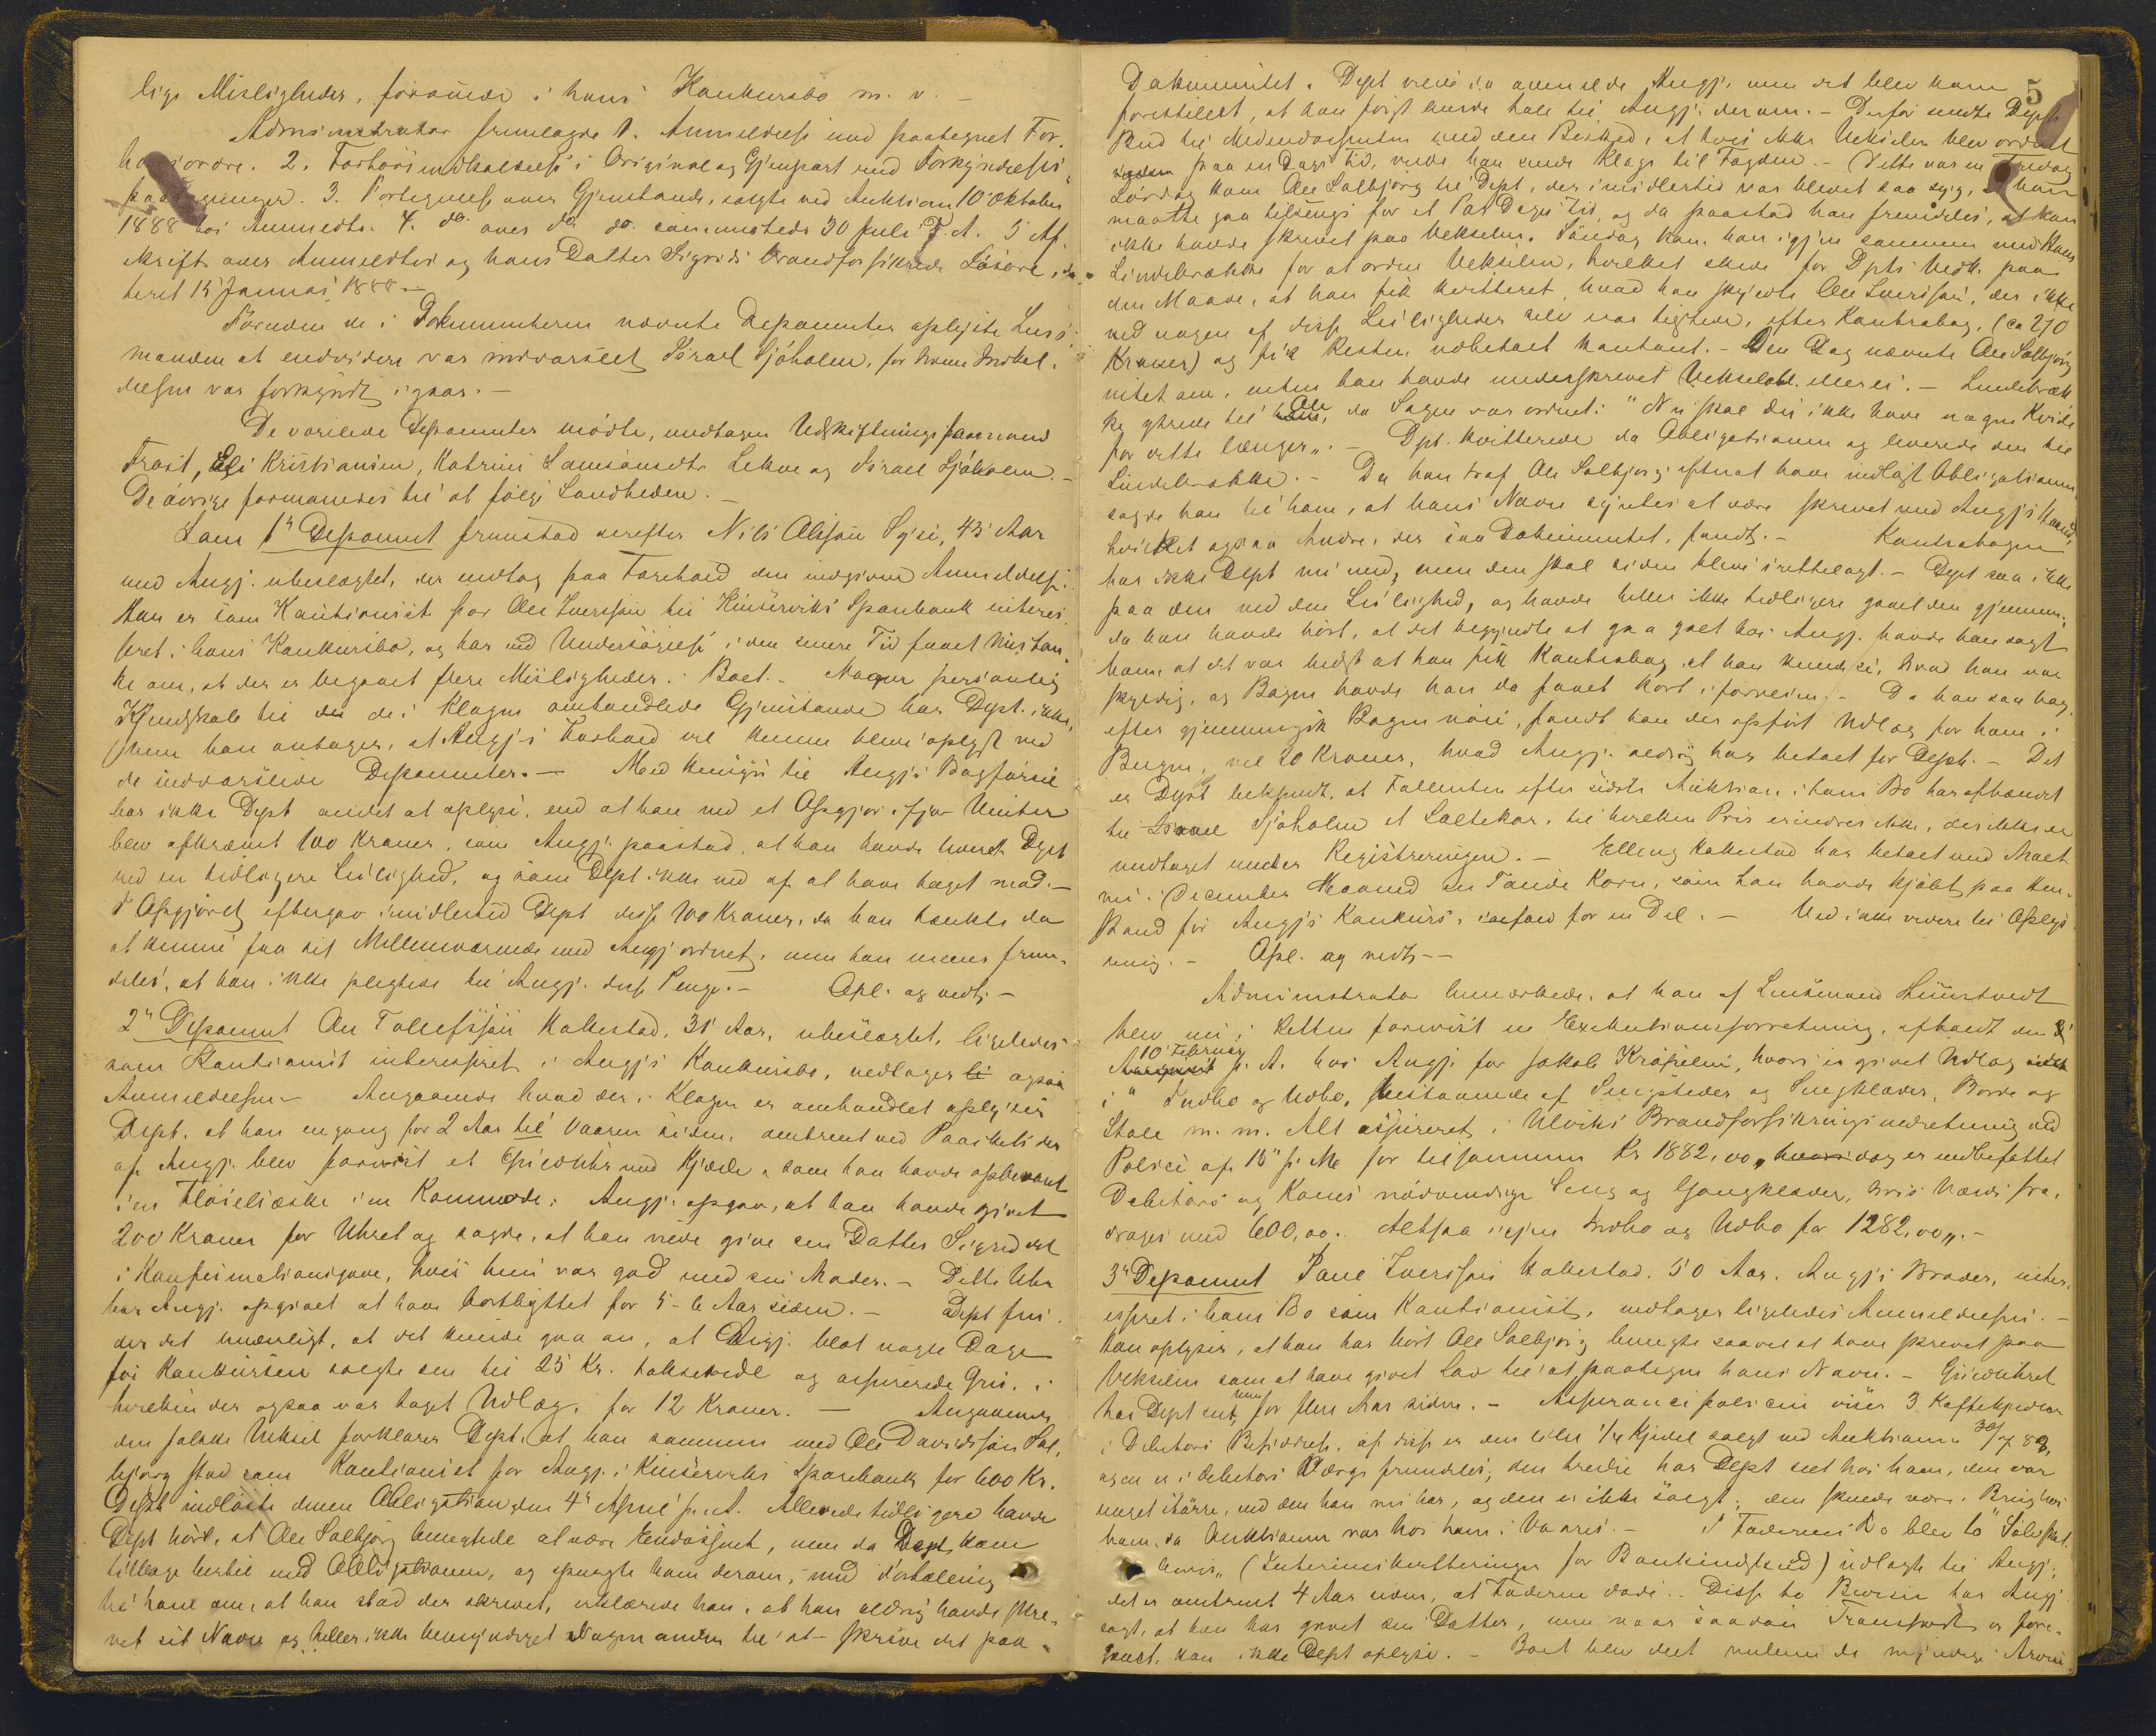 lige Misligheder, foraarede i hans Konkursbo m. v. –
Administrator fremlagde 1. Anmeldelse med paategnet For-
hørsordre. 2. Forhørsindkaldelse i Original og Gjenpart med Forkyndelses-
paategninger. 3. Fortegnelse over Gjenstande, solgte ved Auktion 10 Oktober
1888 hos Anmeldte. 4. do. over do. do. sammesteds 30 Juli d. A. 5 Af-
skrift over Anmeldtes og hans Datter Sigrids brandforsikrede Løsøre, da-
teret 15 Januar 1888. –
Foruden de i Dokumenterne nævnte Deponenter oplyste Lens-
manden at endvidere var indvarslet Israel Sjøholm, for hvem Indkal-
delsen var forkyndt igaar. –
De varslede Deponenter mødte, undtagen Udskiftningsformand
Frost, Eli Kristiansen, Katrine Samsonsdtr Lekve og Israel Sjøholm. –
De øvrige formanedes til at følge Sandheden. –
Som 1ste Deponent fremstod derefter Nils Olsson Syse, 43 Aar
med Angj. ubeslægtet, der vedtog paa Forehold den indgivne Anmeldelse.
Han er som Kautionist for Ole Iversson til Kinserviks Sparebank interes-
seret i hans Konkursbo, og har ved Undersøgelse i den senere Tid faaet Mistan-
ke om, at der er begaaet flere Misligheder i Boet. – Nogen personlig
Kjendskab til de i Klagen omhandlede Gjenstande har Dept. ikke,
men han antager, at Angj's Forhold vil kunne blive oplyst ved
de indvarslede Deponenter. – Med Hensyn til Angj's Bogførsel
har ikke Dept andet at oplyse, end at han ved et Opgjør ifjor Vinter
blev afkrævet 100 Kroner, som Angj. paastod, at han havde laant Dept
ved en tidligere Leilighed, og som Dept. ikke ved af at have taget mod. –
I Opgjøret eftergav imidlertid Dept disse 100 Kroner, da han tænkte da
at kunne faa sit Mellemværende med Angj ordnet, men han mener frem-
deles, at han ikke pligtede til Angj. disse Penge. – Opl. og vedt. –
2den Deponent Ole Tollefsson Hakestad, 31 Aar, ubeslægtet, ligeledes
som Kautionist interesseret i Angj's Konkursbo, vedtager ogsaa
Anmeldelsen – Angaaende hvad der i Klagen er omhandlet oplyser
Dept. at han engang for 2 Aar til Vaaren siden, omtrent ved Paasketider
af Angj. blev forevist et Guldur med Kjæde, som han havde opbevaret
i en Fløielsæske i en Kommode; Angj. opgav, at han havde givet
200 Kroner for Uhret og sagde, at han vilde give sin Datter Sigrid det
i Konfirmationsgave, hvis hun var god med sin Moder. – Dette Uhr
har Angj. opgivet at have bortbyttet for 5 – 6 Aar siden. – Dept fin-
der det underligt, at det kunde gaa an, at Angj. blot nogle Dage
før Konkursen solgte en til 25 Kr. takseret og assureret Gris, i
hvilken der ogsaa var taget Udlæg, for 12 Kroner. – Angaaende
den falske Veksel forklarer Dept. at han sammen med Ole Davidsson Sol-
bjørg stod som Kautionist for Angj. i Kinserviks Sparebank for 600 Kr.
Dept indløste denne Obligation den 4de April d. A. Allerede tidligere havde
Dept hørt, at Ole Solbjørg benegtede at være Endossent, men da Dept kom
tilbage hertil med Obligationen, og spurgte ham derom, med Fortælling
til ham om, at han stod der skrevet, erklærede han, at han aldrig havde skre-
vet sit Navn og heller ikke bemyndiget Nogen anden til at skrive det paa
5
Dokumentet. Dept vilde da anmelde Angj. men det blev ham
forestillet, at han først burde tale til Angj. derom. – Derfor sendte Dept
Bud til Medendossenten med den Besked, at hvis ikke Vekselen blev ordnet
paa en Dags Tid, vilde han sende Klage til Fogden. – Dette var en Fredag
Lørdag kom Ole Solbjørg til Dept, der imidlertid var blevet saa syg, at han
maatte gaa tilsengs for et Par Dages Tid, og da paastod han fremdeles, at han
ikke havde skrevet paa Vekselen. Søndag kom han igjen sammen med Hans
Lindebrække for at ordne Vekselen, hvilket skede for Dpts Vedk. paa
den Maade, at han fik kvitteret, hvad han skyldte Ole Iversson, der ikke
ved nogen af disse Leiligheder selv var tilstede, efter Kontrabog, (ca 270
Kroner) og fik Resten udbetalt kontant. – Den Dag nævnte Ole Solbjørg
intet om, enten han havde underskrevet Vekselobl. eller ei. – Lindebræk-
ke ytrede til Ole, da Sagen var ordnet: "Nu skal du ikke have nogen Kvide
for dette længer". – Dpt. kvitterede da Obligationen og leverede den til
Lindebrække. – Da han traf Ole Solbjørg efterat have indløst Obligationen,
sagde han til ham, at hans Navn syntes at være skrevet med Angj's Haand,
hvilket ogsaa Andre, der saa Dokumentet, fandt. – Kontrabogen
har ikke Dept nu med, men den skal siden blive irettelagt. – Dept saa ikke
paa den ved den Leilighed, og havde heller ikke tidligere gaaet den gjennem;
da han havde hørt, at det begyndte at gaa galt hos Angj. havde han sagt
ham at det var bedst at han fik Kontrabog, at han kunde se, hvad han var
skyldig, og Bogen havde han da faaet kort i forveien. – Da han saa bag-
efter gjennemgik Bogen nøie, fandt han der opført Udlæg for ham i
Bergen, vel 20 Kroner, hvad Angj. aldrig har betalt for Dept. – Det
er Dept bekjendt, at Fallenten efter sidste Auktion i hans Bo har afhændet
til Israel Sjøholm et Saltekar, til hvilken Pris erindres ikke, der ikke er
medtaget under Registreringen. – Elling Hakestad har betalt med Malt
nu i December Maaned en Tønde Korn, som han havde kjøbt paa Hen-
stand før Angj's Konkurs, iaefald for en Del. – Ved ikke videre til Oplys-
ning. – Opl. og vedt. –
Administrator bemærkede, at han af Lensmand
blev nu i Retten forevist en Exekutionsforretning, afholdt den
10 Februar f. A. hos Angj. for Jakob Kråkelie, hvori er givet Udlæg
i "Indbo og Udbo, bestaaende af Sengsteder og Sengklæder, Borde og
Stole m. m. Alt assureret i Ulviks Brandforsikringsindretning ved
Police af 15de f. M. for tilsammen Kr. 1882,00, hvori dog er indbefattet
Debitors og Kones nødvendige Seng og Gangklæder, hvis Værdi fra-
drages med 600,00. Altsaa igjen Indbo og Udbo for 1282,00". –
3die Deponent Poul Iversson Hakestad. 50 Aar. Angj's Broder, inter-
esseret i hans Bo som Kautionist, vedtager ligeledes Anmeldelsen. –
Han oplyser, at han har hørt Ole Solbjørg benegte saavel at have skrevet paa
Vekselen som at have givet Lov til at paategne hans Navn. – Guldühret
har Dept seet, men for flere Aar siden. – Assurancepolicen viser 3 Kaffekjedler
i Debitors Besiddelse, af disse er den lille 1/4 Kjedel solgt ved Auktionen 30/7 89,
en er i Debitors Værge fremdeles; den tredie har Dept seet hos ham, den var
noget større, end den han nu har, og den er ikke solgt; den skulde være i Brug hos
ham, da Auktionen var hos ham i Vaares. – I Faderens Bo blev to "Sølvskat-
bevis" (Interimskvitteringer for Bankindskud) udlagte til Angj.;
det er omtrent 4 Aar siden, at Faderen døde. Disse to Beviser har Angj
sagt, at han har givet sin Datter, men naar saadan Transport er fore-
gaaet, kan ikke Dept oplyse. – Boet blev delt mellem de myndige Arvin-